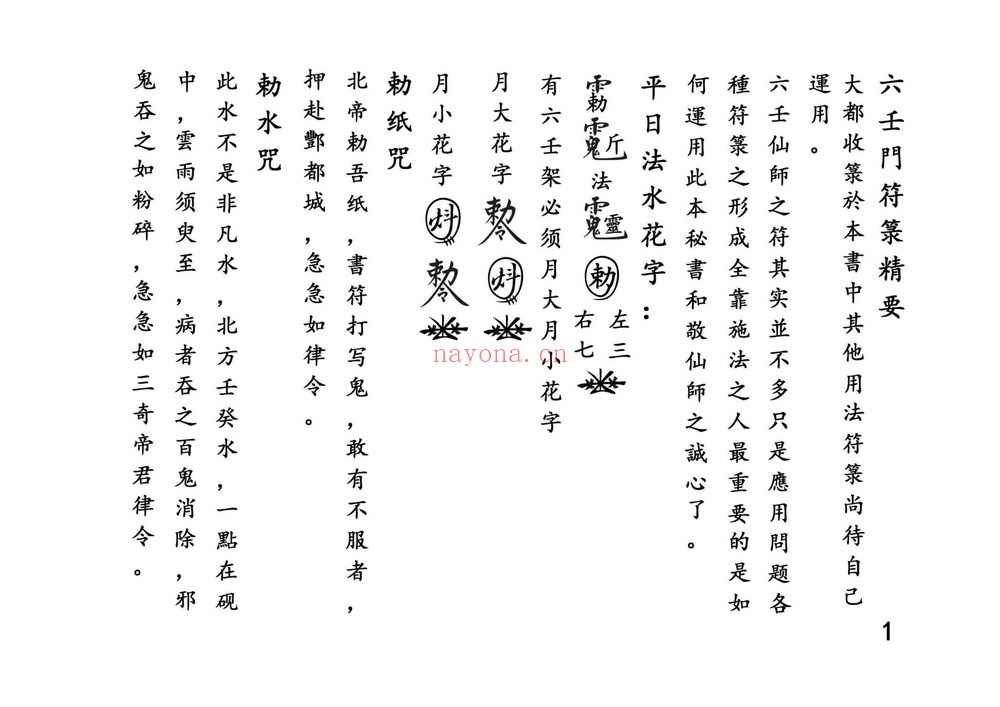 六壬門符箓精要
大都收箓於本書中其他用法符箓尚待自己
運用。
六壬仙師之符其实並不多只是應用問題各
種符箓之形成全靠施法之人最重要的是如
何運用此本秘書和敬仙師之誠心了。
平日法水花字：
法 勅 左三
右七
有六壬架必须月大月小花字
月大花字
月小花字
勅纸咒
北帝勅吾纸，書符打写鬼，敢有不服者，
押赴酆都城，急急如律令。
勅水咒
此水不是非凡水，北方壬癸水，一點在砚
中，雲雨须臾至，病者吞之百鬼消除，邪
鬼吞之如粉碎，急急如三奇帝君律令。
1
nayona.cn